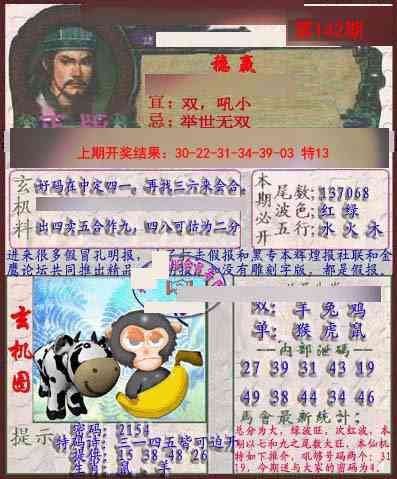 第142期
稳赢
宜：双，吼小
忌：举世无双
上期开奖结果：30-22-31-34-39-03 特13
玄机料
好码在中定四一，再找三六来会合。
出四卖五合作九，四八可估为二分
本期必开
尾数：137068
波色：红 绿
五行：水 火 木
进来很多假冒孔明报，
去假报和黑专本辉煌报社联和金
鹰论坛共同推出精品
没有雕刻字版，都是假报。
玄机图
双：羊 兔 鸡
单：猴 虎 鼠
--内部泄码--
27 39 31 43 19
49 38 44 34 46
马會最新統计：
总分为大，绿波旺，次红波，本
期以七和九之尾数大旺，本仙机
特如下推介，吼够号码两个：31
19，今期送与大家的密码为4。
提示
密码：2154
特码诗：三一四五皆可追开
提供：15 38 48 26
生肖：鼠、羊